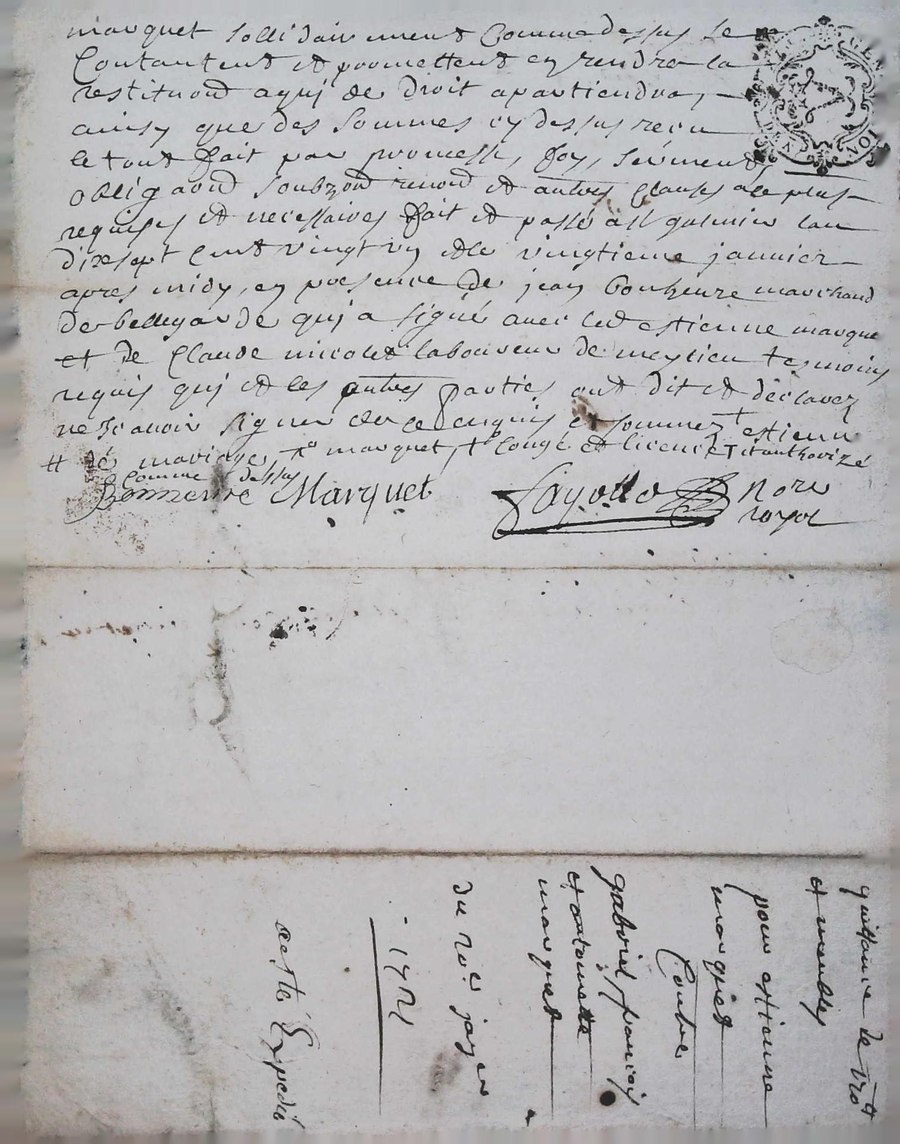 marquet sollidairement Comme dessus se
Contantent et promettent en rendre la
restituond a qui de Droit apartiendra,
ainsy que des sommes cy dessus receu
le tout fait par promesse, foy, serment
obligaond soubzond renond et autres Clauses a ce plus
requises et necessaires fait et passé a St galmier lan
dixsept Cent vingt un et le vingtieme janvier
apres midy, en presence de jean bonheure marchand
de bellegarde qui a signé avec led estienne marque
et de Claude nicolas laboureur de meylieu tesmoins
requis qui et les autres parties ont dit et declarez
ne scavoir signer de ce enquis et sommez + estienne
# de mariage, marquet, congé et licence et authorizé
Comme dessus
Bonneure Marquet Fayolle Nore
royal
GEN ION
quittance de
et meubles
pour estienne
marquet
Contre
gabriel, francois
et antoinette
marquet
du 20e janer
1721
acte Expedié